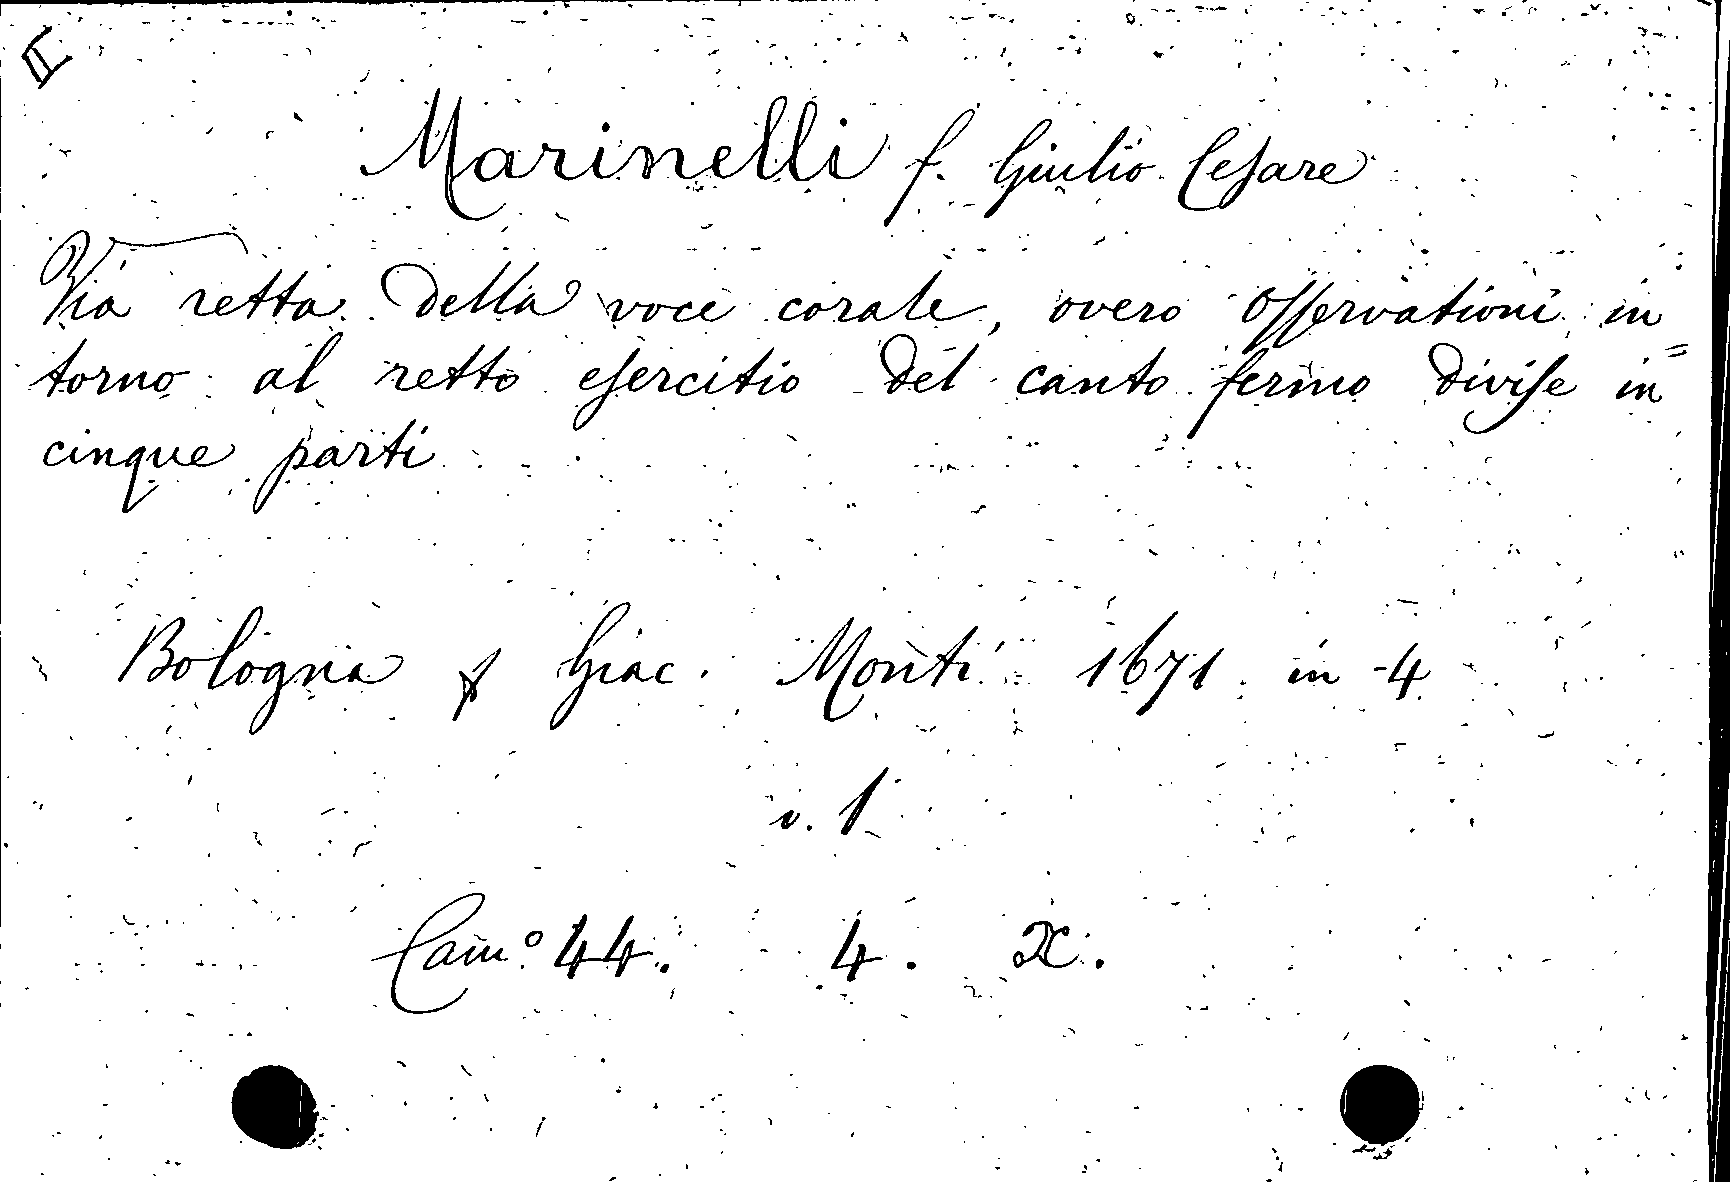 II
Marinelli f. Giulio Cesare
Via retta della voce corale, overo Osservationi in=
torno al retto esercitio del canto fermo divise in
cinque parti
Bologna p Giac. Monti 1671 in 4
v. 1
Cam.º 44. 4. X.